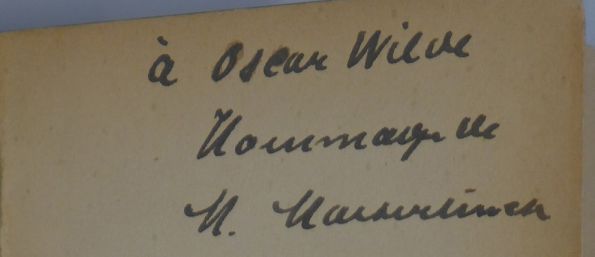 à Oscar Wilde
Hommage de
M. Maeterlinck